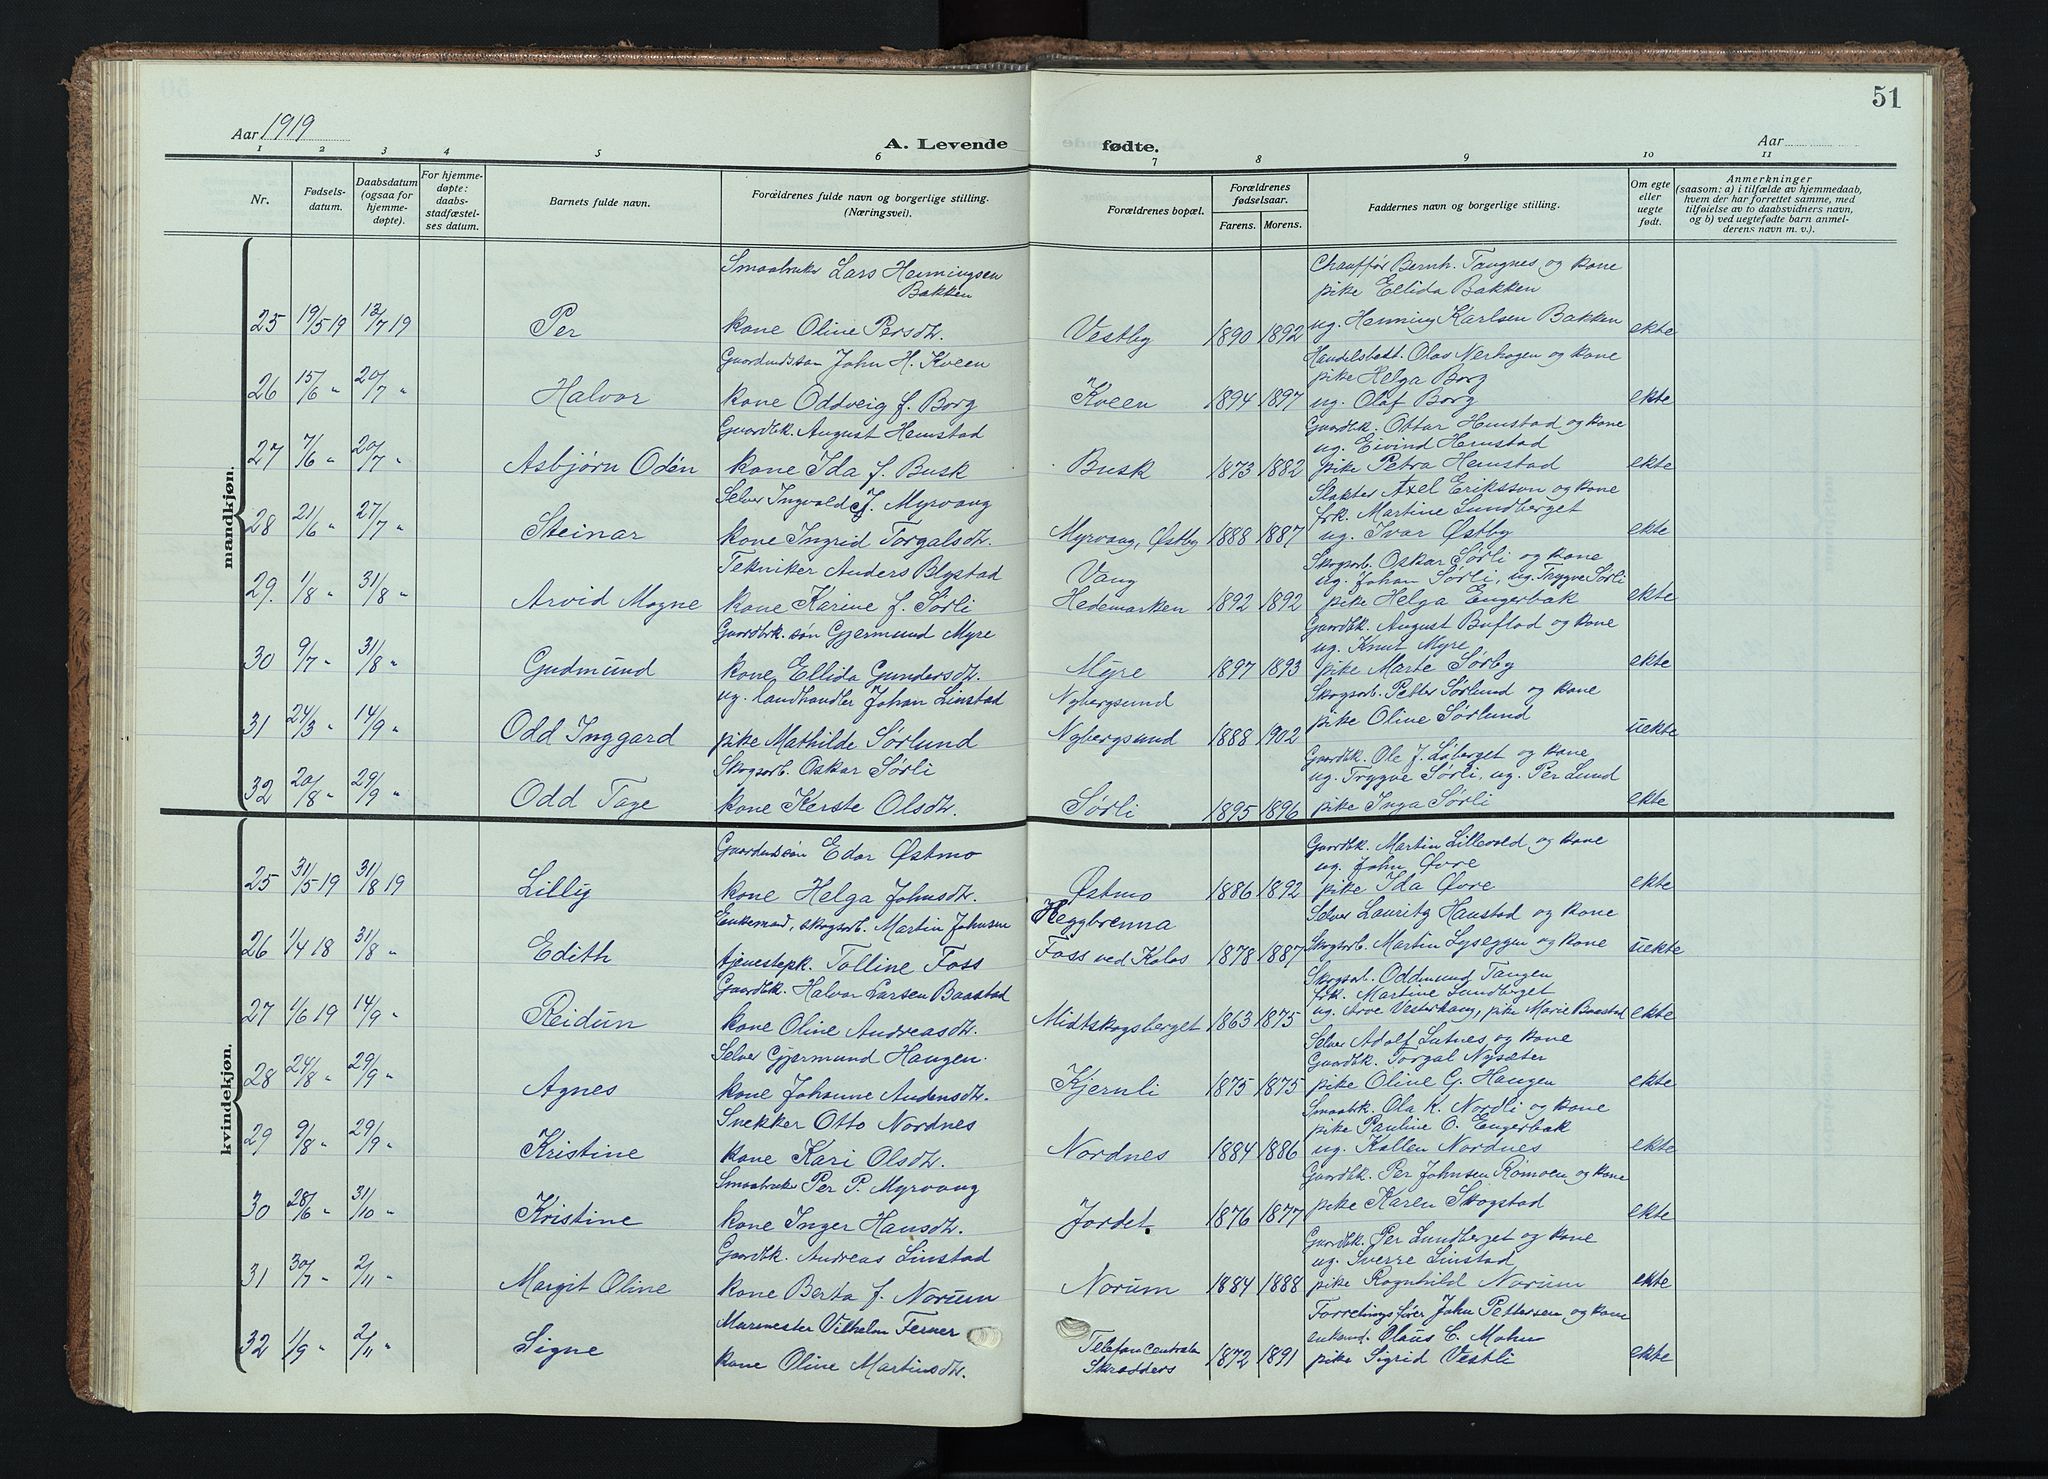 51
Aar 1919
A. Levende fødte.
Aar
1 2 3 4 5 6 7 8 9 10 11
Nr.
Fødsels-
datum.
Daabsdatum
(ogsaa for
hjemme-
døpte).
For hjemme-
døpte:
daabs-
stadfæstel-
ses datum.
Barnets fulde navn.
Forældrenes fulde navn og borgerlige stilling.
(Næringsvei).
Forældrenes bopæl.
Forældrenes
fødselsaar.
Farens. Morens.
Faddernes navn og borgerlige stilling.
Om egte
eller
uegte
født.
Anmerkninger
(saasom: a) i tilfælde av hjemmedaab,
hvem der har forrettet samme, med
tilføielse av to daabsvidners navn,
og b) ved uegtefødte barn anmel-
derens navn m. v.).
mandkjøn.
Smaabruker Lars Henningsen
Bakken
Chauffør Bernh. Tangnes og kone
pike Ellida Bakken
25 19/5 19 13/7 19 Per kone Oline Persdtr. Vestby 1890 1892 ug. Henning Karlsen Bakken ekte
Gaardmdssøn John H. Kveen
Handelsbest. Olav Nerhagen og kone
pike Helga Borg
26 15/6 " 20/7 " Halvor kone Oddveig f. Borg Kveen 1894 1897 ug. Olaf Borg ekte
Gaardbk. August Hemstad
Gaardbk. Ottar Hemstad og kone
ug. Eivind Hemstad
27 7/6 " 20/7 " Asbjørn Odén kone Ida f. Busk Busk 1873 1882 pike Petra Hemstad ekte
Selver Ingvald J. Myrvang
Slakter Axel Eriksson og kone
frk. Martine Lundberget
28 21/6 " 27/7 " Steinar kone Ingrid Torgalsdtr. Myrvang, Østby 1888 1887 ug. Ivar Østby ekte
Tekniker Anders Blystad
Vang
Skogsarb. Oskar Sørli og kone
ug. Johan Sørli, ug. Trygve Sørli
29. 1/8 31/8 " Arvid Magne kone Karine f. Sørli Hedemarken 1892 1892 pike Helga Engerbak ekte
Gaardbrk. søn Gjermund Myre
Gaardbk. August Buflod og kone
ug. Knut Myre
30 9/7 " 31/8 " Gudmund kone Ellida Gundersdtr. Myre 1897 1893 pike Marte Sørby ekte
ug. landhandler Johan Linstad
Nybergsund
Skogsarb. Petter Sørlund og kone
31 24/3 " 14/9 " Odd Inggard pike Mathilde Sørlund Nybergsund 1888 1902 pike Oline Sørlund uekte
Skogsarb. Oskar Sørli
Gaardbk. Ole J. Løberget og kone
ug. Trygve Sørli, ug. Per Lund
32 20/8 " 29/9 " Odd Tage kone Kerste Olsdtr. Sørli 1895 1896 pike Inga Sørli ekte
kvindekjøn.
Gaardmdssøn Edor Østmo
Gaardbk. Martin Lillevold og kone
ug. John Øvre
25 31/5 19 31/8 19 Lilly kone Helga Johnsdtr. Østmo 1886 1892 pike Ida Øvre ekte
Enkemand, skogsarb. Martin Johnsen
Heggbrenna
Selver Lauritz Hanstad og kone
26 1/4 18 31/8 " Edith tjenestepk. Tolline Foss Foss ved Kolos 1878 1887 Skogsarb. Martin Lyseggen og kone uekte
Gaardbk. Halvor Larsen Baastad
Skogsarb. Oddmund Tangen
frk. Martine Lundberget
27 1/6 19 14/9 " Reidun kone Oline Andreasdtr. Midtskogsberget 1863 1875 ug. Arve Vesterhaug, pike Marie Baastad ekte
Selver Gjermund Haugen.
Selver Adolf Lutnes og kone
Gaardbk. Torgal Nysæter
28 24/8 " 29/9 " Agnes kone Johanne Andersdtr. Kjernli 1875 1875 pike Oline G. Haugen ekte
Snekker Otto Nordnes
Smaabrk. Ola K. Nordli og kone
pike Pauline O. Engerbak
29 9/8 " 29/9 " Kristine kone Kari Olsdtr. Nordnes 1884 1886 ug. Kallen Nordnes ekte
Smaabruker Per P. Myrvang
Gaardbk. Per Johnsen Römoen og kone
30 28/6 " 31/10 " Kristine kone Inger Hansdtr. Jordet. 1876 1877 pike Karen Skogstad ekte
Gaardbk. Andreas Linstad
Gaardbk. Per Lundberget og kone
ug. Sverre Linstad
31 30/7 " 2/11 " Margit Oline kone Berta f. Norum Norum 1884 1888 pike Ragnhild Norum ekte
Murmester Vilhelm Ferner
Forretningsfører John Pettersen og kone
enkemd. Olaus C. Mohn
32 1/9 " 2/11 " Signe kone Oline Martinsdtr. Telefoncentralen Skrædders 1872 1891 pike Sigrid Vestli ekte